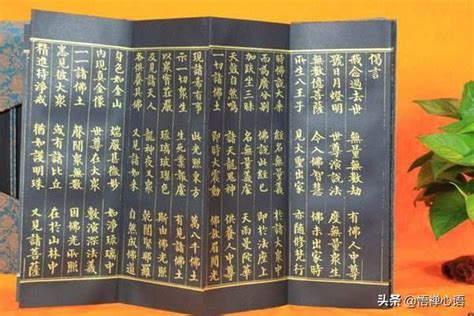 偈言
我念過去世 無量無數劫 有佛人中尊
號日月燈明 世尊演說法 度無量衆生
無數億菩薩 令入佛智慧 佛未出家時
所生八王子 見大聖出家 亦隨修梵行
時佛說大乘 經名無量義 於諸大衆中
而爲廣分別 佛說此經已 即於法座上
加趺坐三昧 名無量義處 天雨曼陀華
天鼓自然鳴 諸天龍鬼神 供養人中尊
一切諸佛土 即時大震動 佛放眉間光
現諸希有事 此光照東方 萬八千佛土
示一切衆生 生死業報處 有見諸佛土
以衆寶莊嚴 琉璃玻瓈色 斯由佛光照
及見諸天人 龍神夜叉衆 乾闥緊那羅
各供養其佛 又見諸如來 自然成佛道
身色如金山 端嚴甚微妙 如淨琉璃中
內現真金像 世尊在大衆 敷演深法義
一一諸佛土 聲聞衆無數 因佛光所照
悉見彼大衆 或有諸比丘 在於山林中
精進持淨戒 猶如護明珠 又見諸菩薩
头条 @悟禅心语